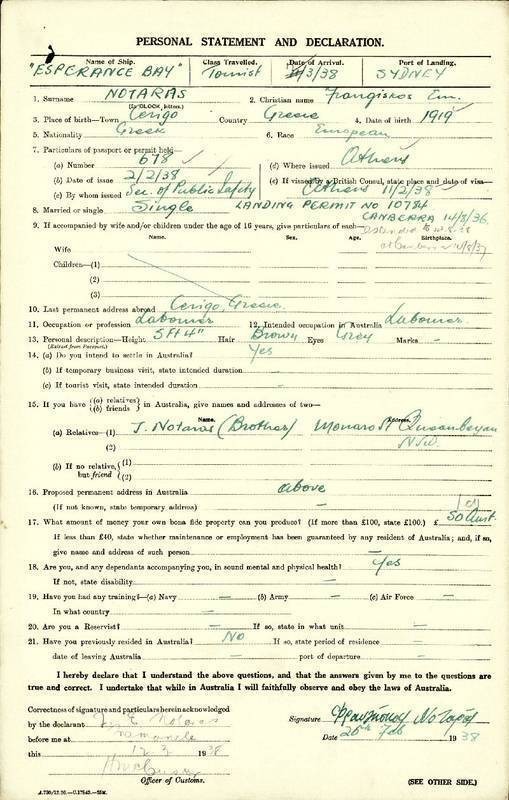 PERSONAL STATEMENT AND DECLARATION.
Name of Ship. Class Travelled. Date of Arrival. Port of Landing.
"ESPERANCE BAY" Tourist /3/38 SYDNEY
1. Surname NOTARAS 2. Christian name Frangiskos Em.
(In BLOCK letters.)
3. Place of birth—Town Cerigo Country Greece 4. Date of birth 1919
5. Nationality Greek 6. Race European
7. Particulars of passport or permit held—
(a) Number 678 (d) Where issued Athens
(b) Date of issue 2/2/38 (e) If visaed by a British Consul, state place and date of visa—
(c) By whom issued Sec. of Public Safety Athens 11/2/38
8. Married or single Single LANDING PERMIT NO 10784
CANBERRA 14/8/36.
9. If accompanied by wife and/or children under the age of 16 years, give particulars of each—
Name. Sex. Age. Birthplace.
Wife
Children—(1)
(2)
(3)
10. Last permanent address abroad Cerigo, Greece.
11. Occupation or profession Labourer 12. Intended occupation in Australia Labourer
13. Personal description—Height 5ft 4" Hair Brown Eyes Grey Marks –
(Extract from Passport)
14. (a) Do you intend to settle in Australia? Yes
(b) If temporary business visit, state intended duration
(c) If tourist visit, state intended duration –
15. If you have {(a) relatives} {(b) friends } in Australia, give names and addresses of two—
Name. Address.
(a) Relatives—(1) J. Notaras (Brother) Monaro St Queanbeyan
(2) NSW.
(b) If no relative, but friend {(1)
(2)
16. Proposed permanent address in Australia above
(If not known, state temporary address) –
17. What amount of money your own bona fide property can you produce? (If more than £100, state £100.) £ 50 Aust.
If less than £40, state whether maintenance or employment has been guaranteed by any resident of Australia; and, if so,
give name and address of such person –
18. Are you, and any dependants accompanying you, in sound mental and physical health? Yes
If not, state disability –
19. Have you had any training?—(a) Navy – (b) Army – (c) Air Force –
In what country –
20. Are you a Reservist? – If so, state in what unit –
21. Have you previously resided in Australia? No If so, state period of residence –
date of leaving Australia – port of departure –
I hereby declare that I understand the above questions, and that the answers given by me to the questions are
true and correct. I undertake that while in Australia I will faithfully observe and obey the laws of Australia.
Correctness of signature and particulars herein acknowledged
by the declarant Notaras Signature Φραγκίσκος Νοταράς
before me at Fremantle Date 25th Feb 1938
this 12 3 1938
Officer of Customs.
A.730/12.36.—C.17845.—25M. (SEE OTHER SIDE.)